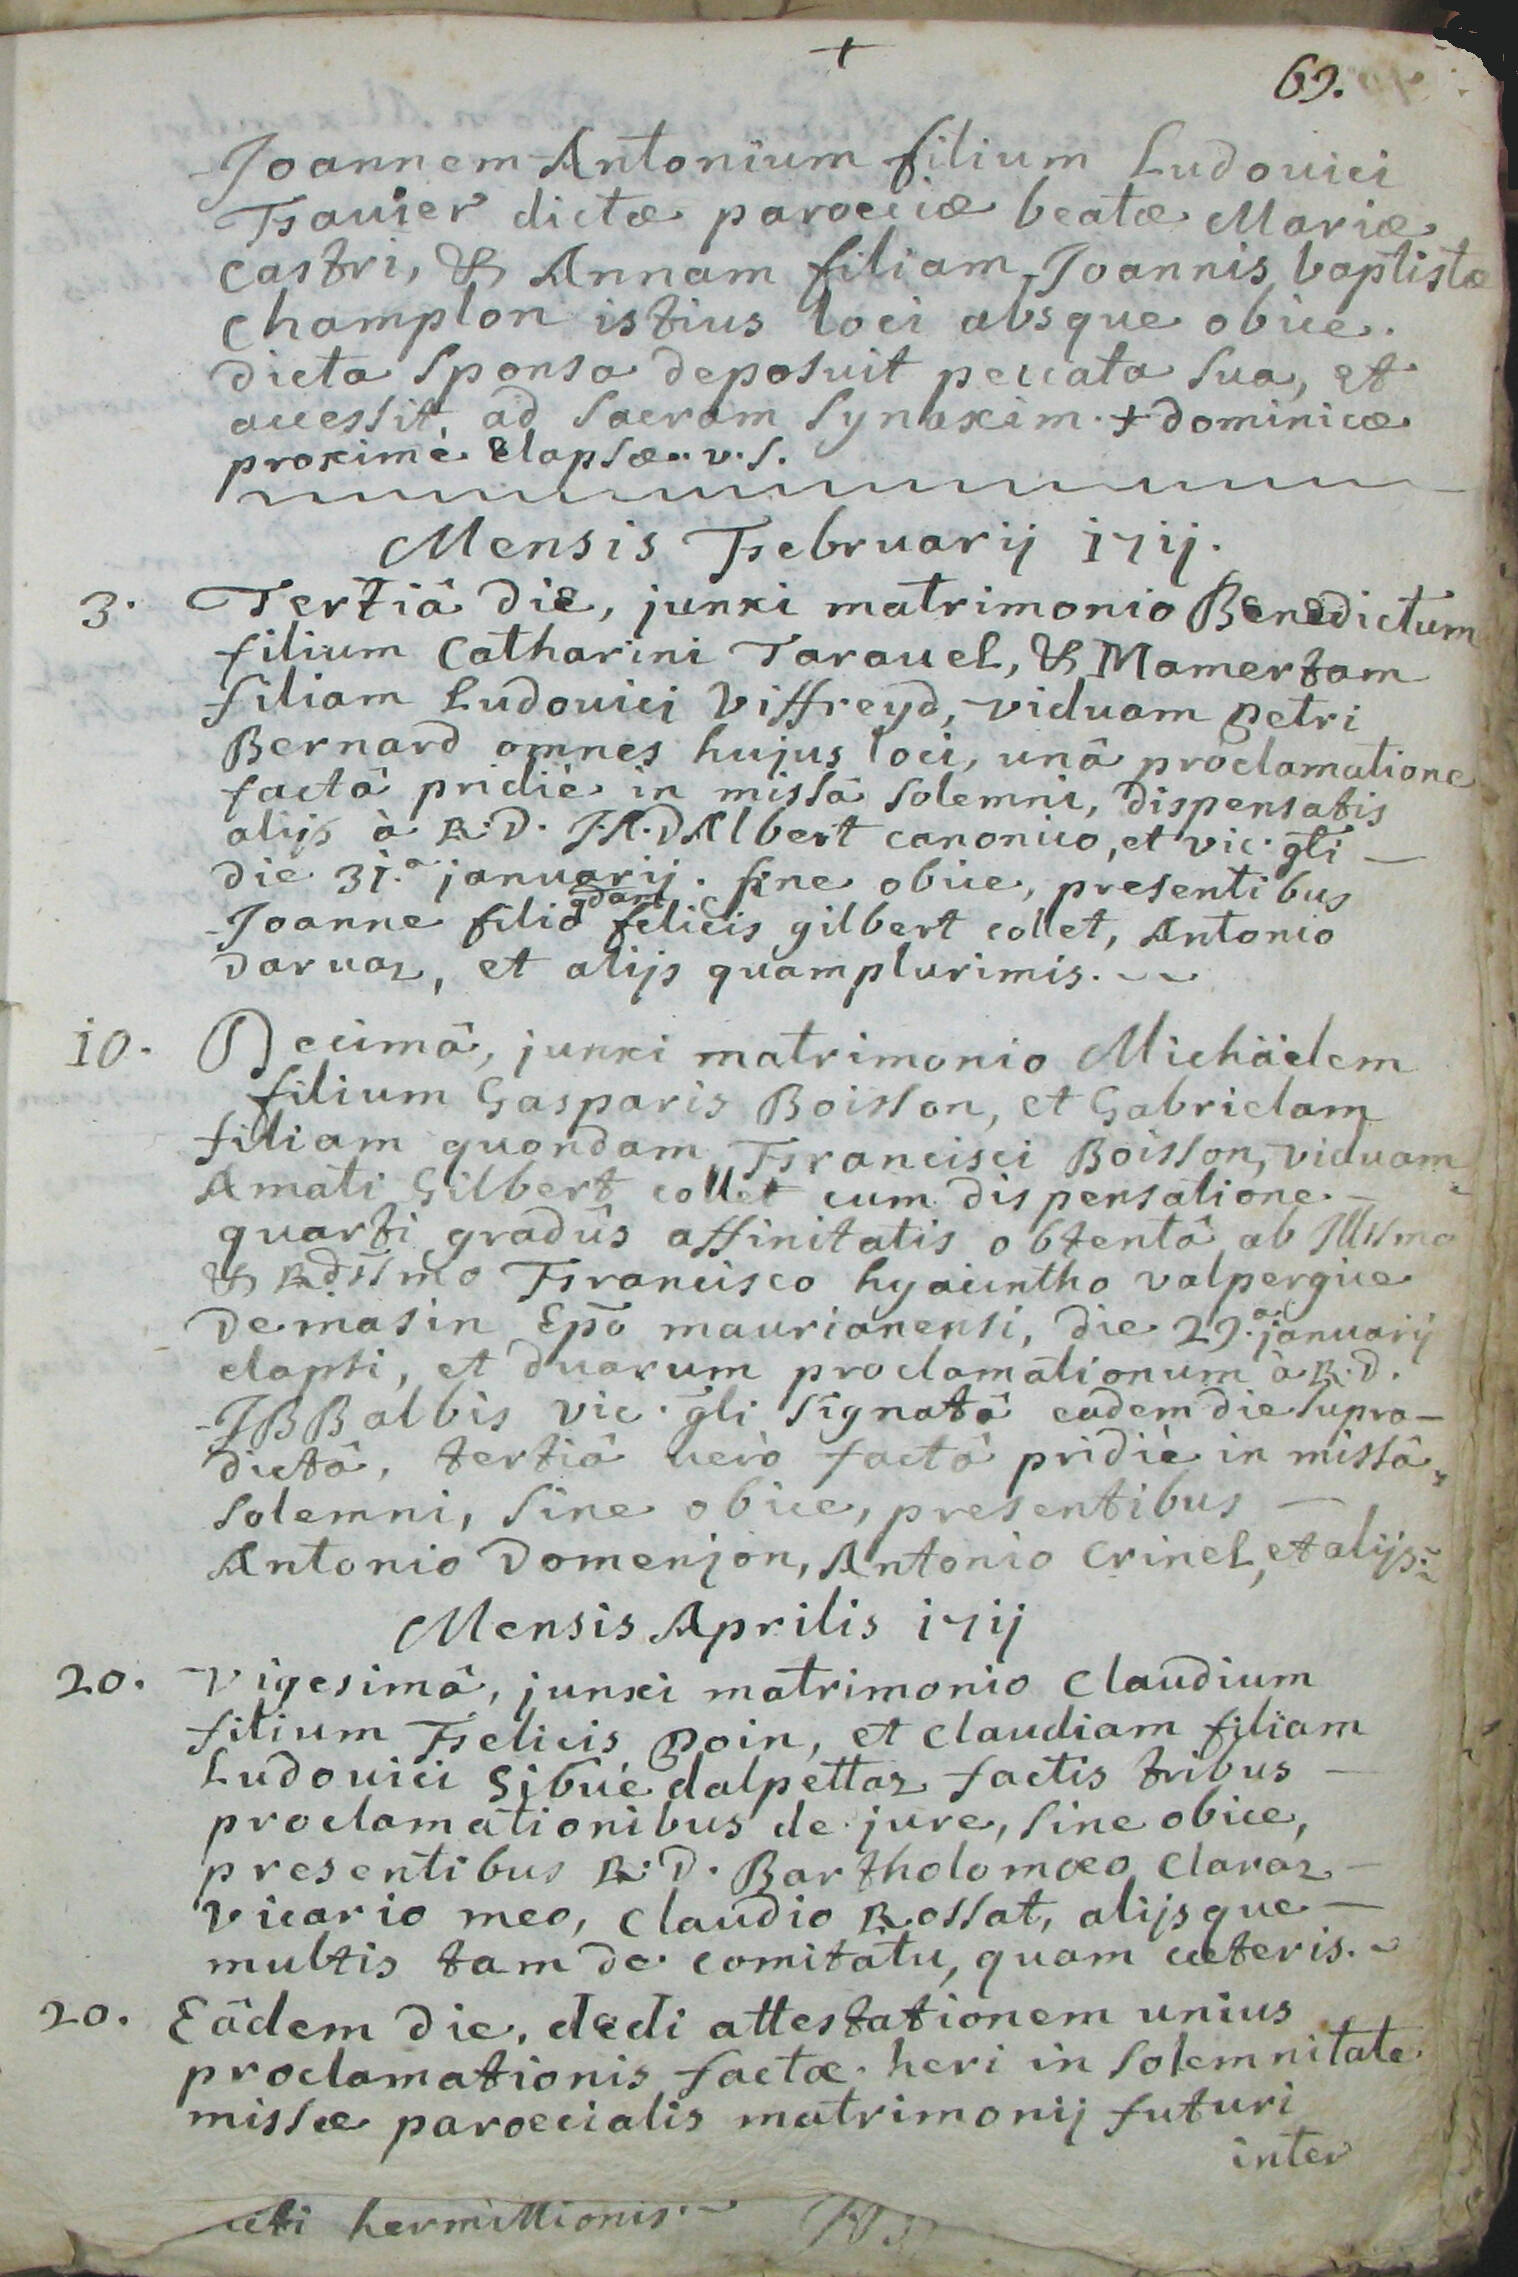 +
69.
Joannem Antonium filium Ludouici
Fauier dictæ parocciæ beatæ Mariæ
castri, & Annam filiam Joannis baptistæ
champlon istius loci absque obice.
dicta sponsa deposuit peccata sua, et
accessit ad sacram synaxim. + dominicæ
proximè elapsæ. v. s.
Mensis Februarij 1711.
3. Tertiâ die, junxi matrimonio Benedictum
filium Catharini Tarauel, & Mamertam
filiam Ludouici Viffreyd, viduam Petri
Bernard omnes hujus loci, unâ proclamatione
factâ pridiè in missâ solemni, dispensatis
alijs à R. D. J. A. DAlbert canonico, et vic. gli
die 31.a januarij. sine obice, presentibus
Joanne filio qdam felicis gilbert collet, Antonio
Daruaz, et alijs quamplurimis.
10. Decimâ, junxi matrimonio Michäelem
filium Gasparis Boisson, et Gabrielam
filiam quondam Francisci Boisson, viduam
Amati Gilbert collet cum dispensatione
quarti gradûs affinitatis obtentâ ab Illsmo
& Rdssmo Francisco hyacintho valpergue
De masin Epō maurianensi, die 29.a januarij
elapsi, et duarum proclamationum à R. D.
JBBalbis vic. gli signatâ eadem die supra-
dictâ, tertiâ uerò factâ pridiè in missâ
solemni, sine obice, presentibus
Antonio Domenjon, Antonio Crinel, et alijs.
Mensis Aprilis 1711
20. Vigesimâ, junxi matrimonio Claudium
filium Felicis Poin, et Claudiam filiam
Ludouici Sibué dalpettaz factis tribus
proclamationibus de jure, sine obice,
presentibus R. D. Bartholomœo Claraz
vicario meo, Claudio Rossat, alijsque
multis tam de comitatu, quam cæteris.
20. Eâdem die, dedi attestationem unius
proclamationis factæ heri in solemnitate
missæ paroccialis matrimonij futuri
inter